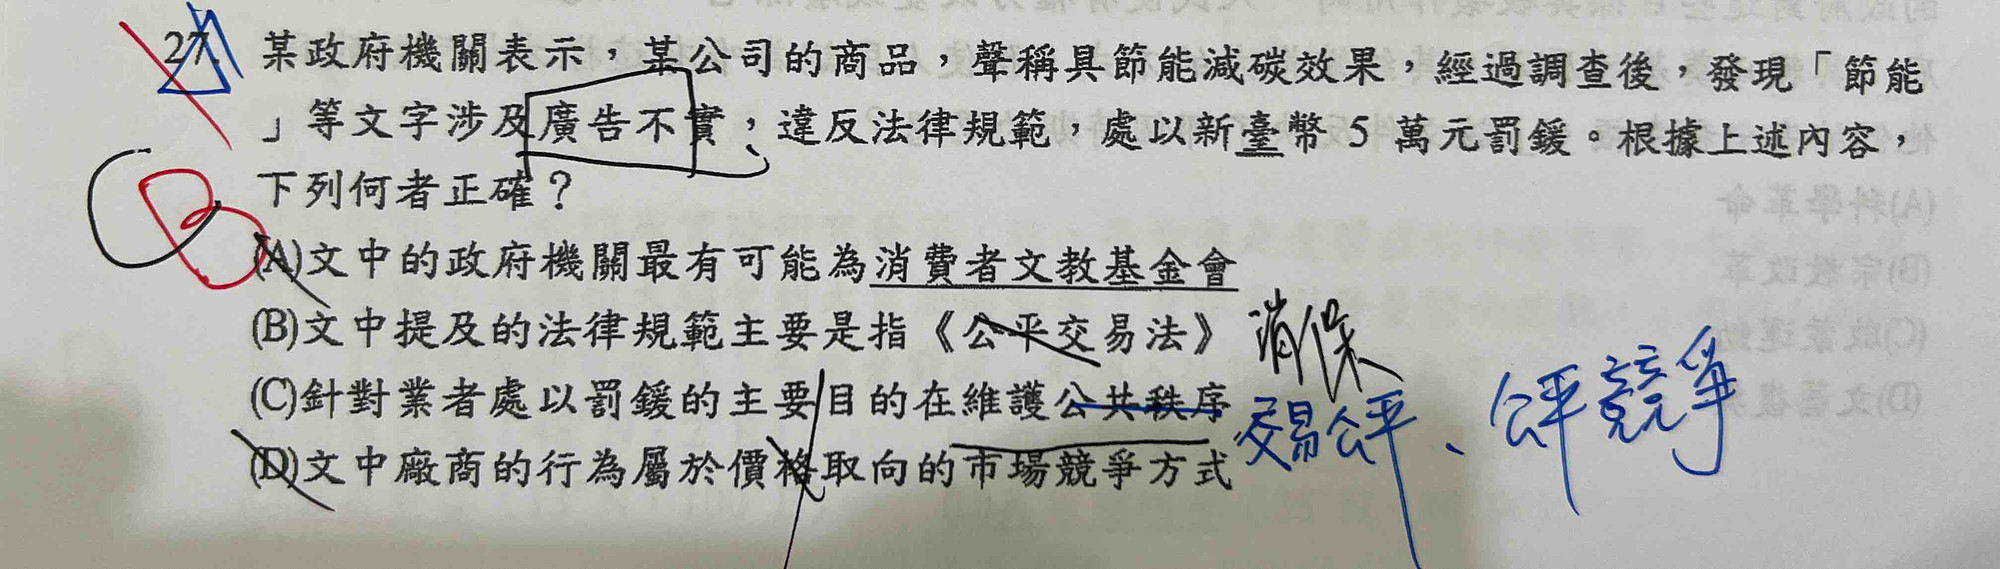 27. 某政府機關表示，某公司的商品，聲稱具節能減碳效果，經過調查後，發現「節能
」等文字涉及廣告不實，違反法律規範，處以新臺幣 5 萬元罰鍰。根據上述內容，
下列何者正確？
C B
(A)文中的政府機關最有可能為消費者文教基金會
(B)文中提及的法律規範主要是指《公平交易法》 消保
(C)針對業者處以罰鍰的主要目的在維護公共秩序 交易公平、公平競爭
(D)文中廠商的行為屬於價格取向的市場競爭方式
(A)科學革命
(B)宗教改革
(C)啟蒙運動
(D)文藝復